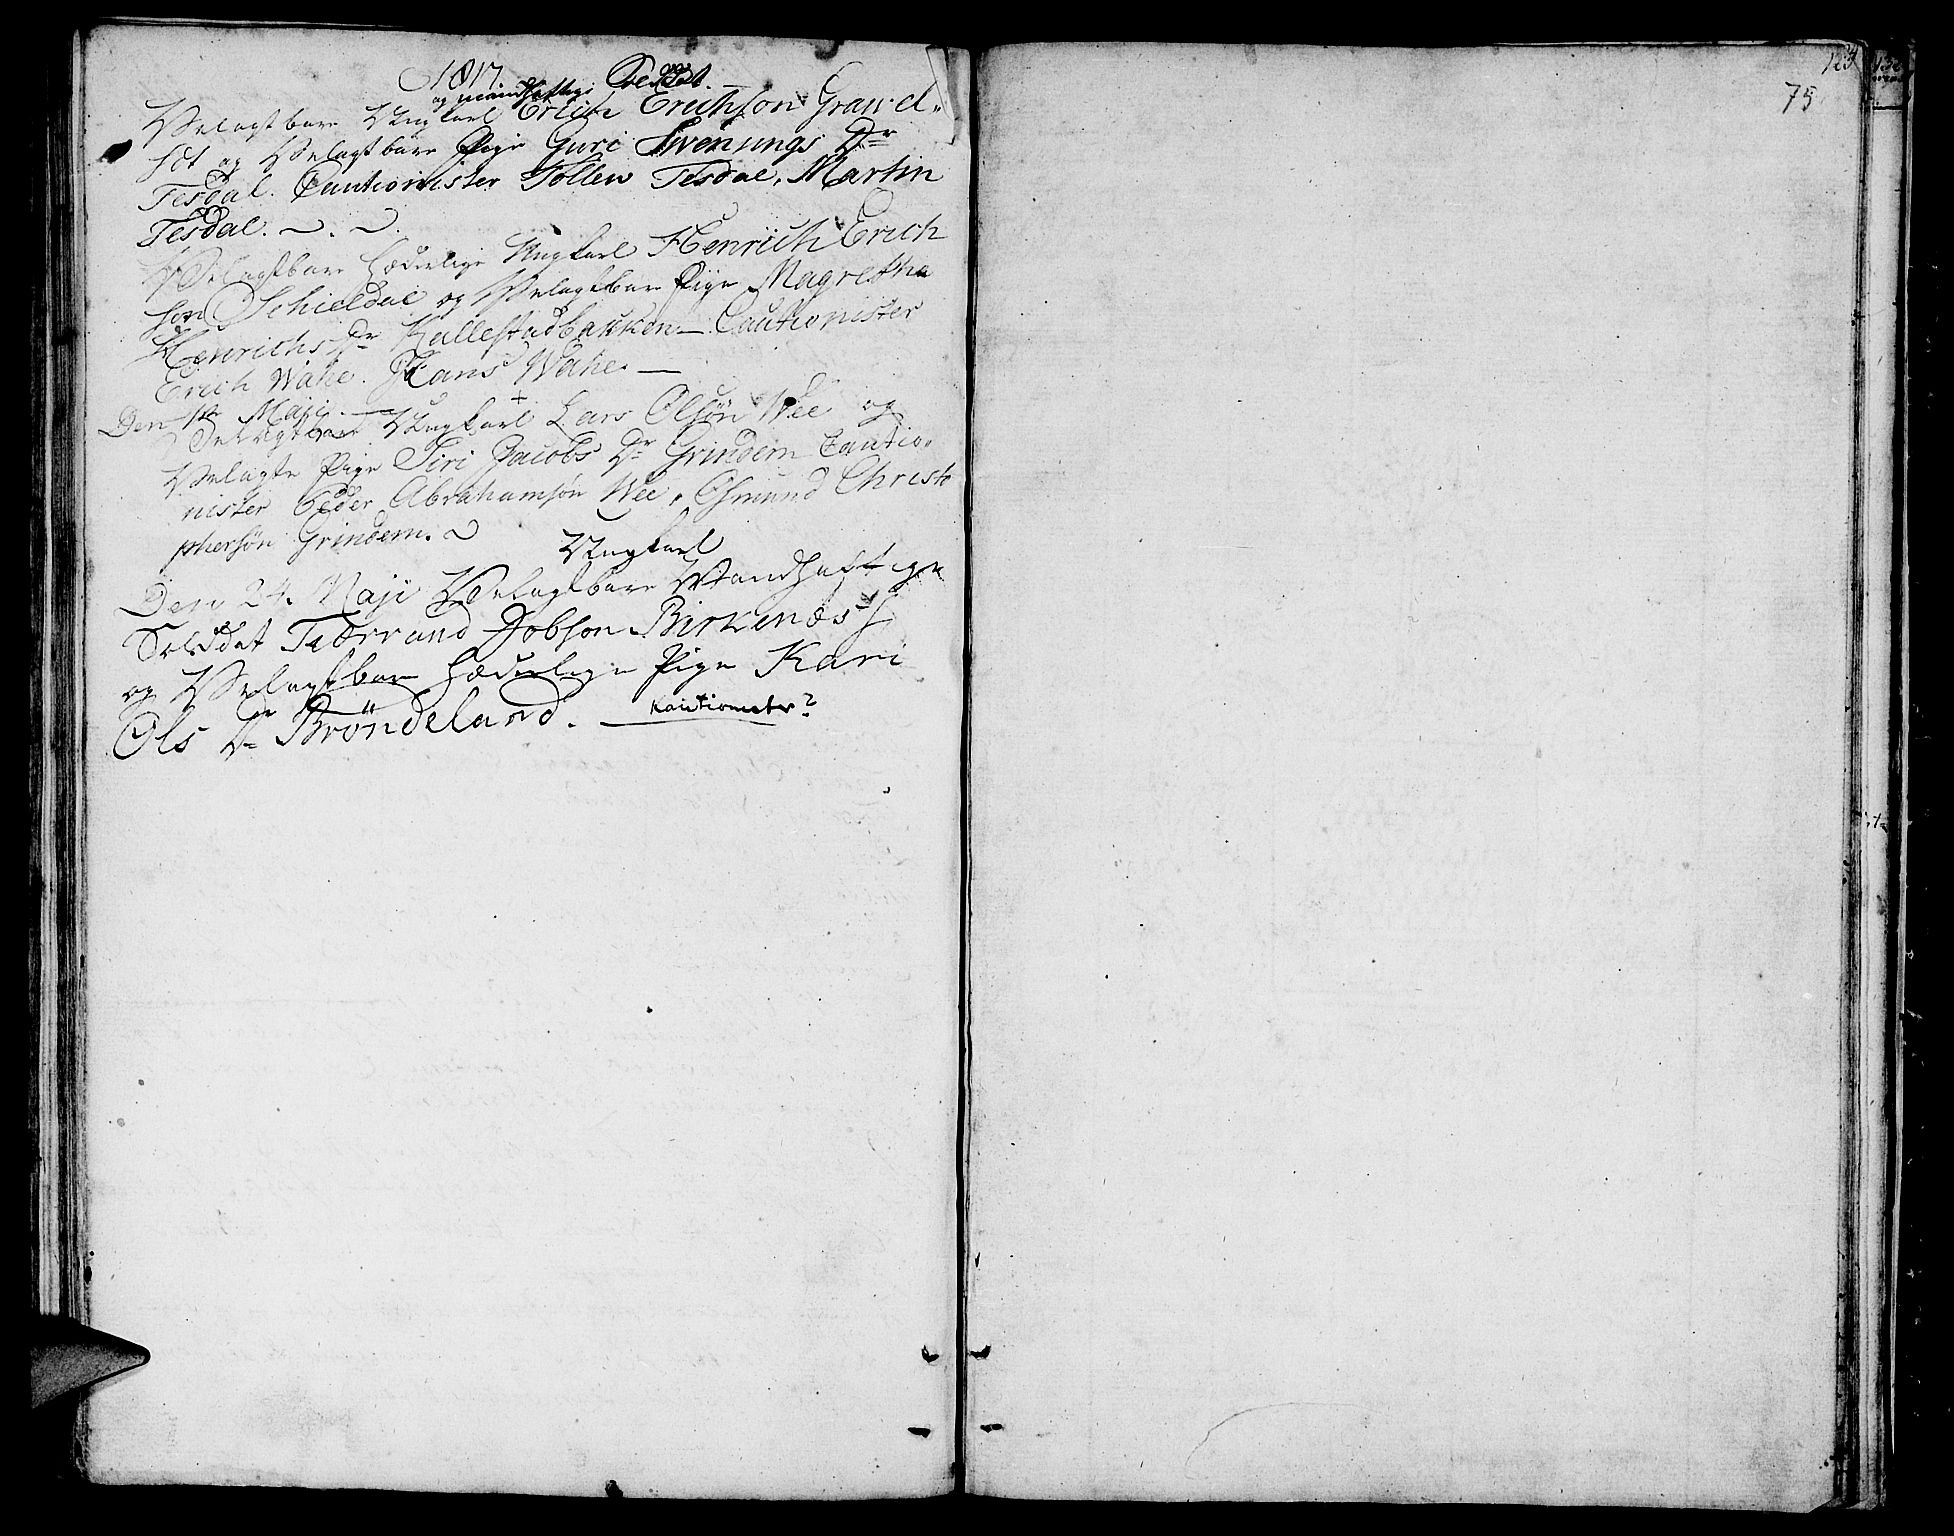 1817
og mandhaftige Soldat.
Velagtbare Ungkarl Erich Erichson Grawd-
og Velagtbare Pige Guri Svenungs Dr
Tesdal. Cautionister Tollew Tesdal, Martin
Tesdal.
Velagtbare hæderlige Ungkarl Henrich Erich
son Schieldal og Velagtbare Pige Magretha
Henrichs Dr Kallestadbakken - Cautionister
Erich Wahe. Hans Wahe. -
Den Maji. - Velagtbare Ungkarl Lars Olsön Wee og
Velagte Pige Siri Jacobs Dr Grindem Cautio-
nister Peder Abrahamsön Wee, Osmund Christo
phersön Grindem.
Ungkarl
Den 24. Maji Velagtbare Mandhaftige
Soldat Tiærrand Jobson Birkenæs
og Velagtbare hæderlige Pige Kari
Ols Dr Bröndeland. - Kautionister?
123
75